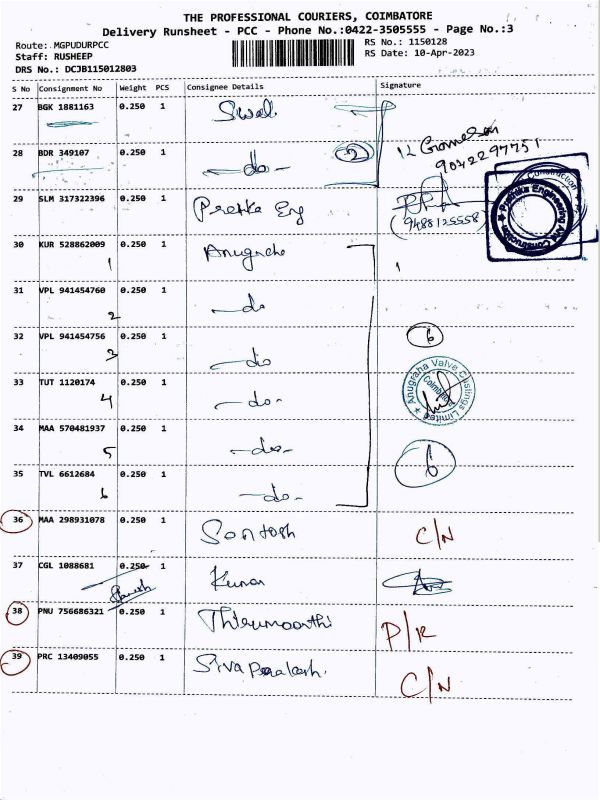 THE PROFESSIONAL COURIERS, COIMBATORE
Delivery Runsheet - PCC - Phone No.:0422-3505555 - Page No.:3
Route: MGPUDURPCC RS No.: 1150128
Staff: RUSHEEP RS Date: 10-Apr-2023
DRS No.: DCJB115012803
S No Consignment No Weight PCS Consignee Details Signature
27 BGK 1881163 0.250 1
28 BDR 349107 0.250 1 -do- 2
9042297751
29 SLM 317322396 0.250 1 Eng
(9488125558)
Pretika Engineering And Construction
30 KUR 528862009 0.250 1 Anugraha
1 1
31 VPL 941454760 0.250 1 -do
2
32 VPL 941454756 0.250 1 -do 6
3
33 TUT 1120174 0.250 1 -do-
4
Anugraha Valve Castings Limited
Coimbatore
34 MAA 570481937 0.250 1 -do-
5 6
35 TVL 6612684 0.250 1 -do-
6
36 MAA 298931078 0.250 1 Santosh C/N
37 CGL 1088681 0.250 1 Kumar
38 PNU 756686321 0.250 1 Thirumoorthi P/R
39 PRC 13409055 0.250 1 Siva Prakash. C/N